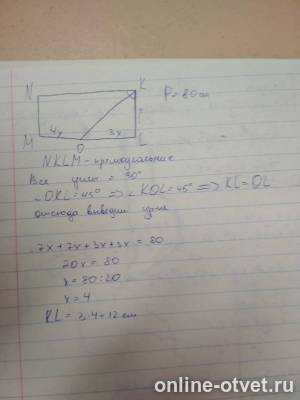 N K P=80см
4x 3x ?
M O L
NKLM - прямоугольник
Все углы = 90°
∠OKL=45° ⟹ ∠KOL=45° ⟹ KL=OL
отсюда выводим
7x+7x+3x+3x=80
20x=80
x=80:20
x=4
KL=3·4=12см
online-otvet.ru